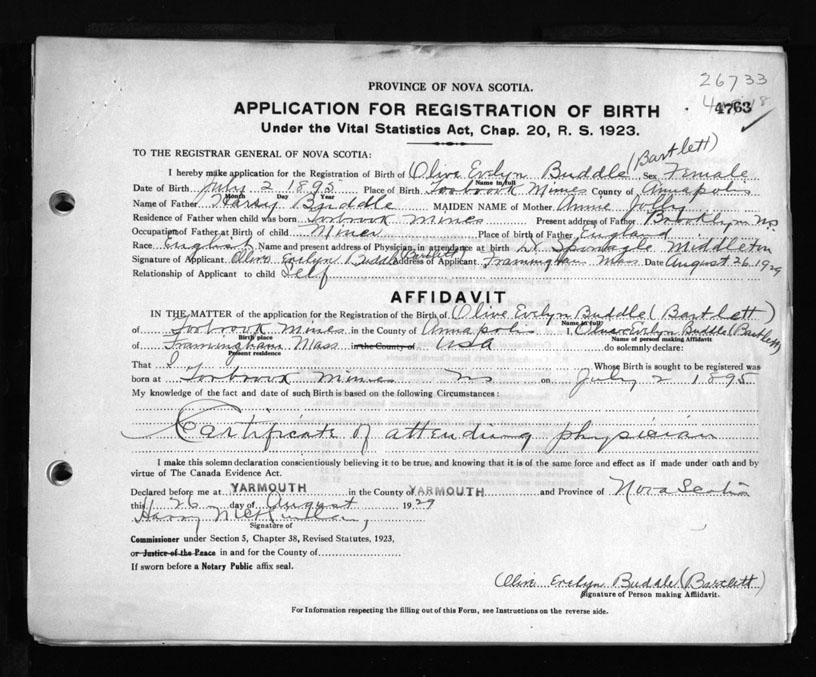 26733
PROVINCE OF NOVA SCOTIA.
APPLICATION FOR REGISTRATION OF BIRTH
4763
Under the Vital Statistics Act, Chap. 20, R. S. 1923.
TO THE REGISTRAR GENERAL OF NOVA SCOTIA:
I hereby make application for the Registration of Birth of Olive Evelyn Buddle (Bartlett) Sex Female
Name in full
Date of Birth July 2 1895 Place of Birth Torbrook Mines County of Annapolis
Month Day Year
Name of Father Harry Buddle MAIDEN NAME of Mother Annie Jolly
Residence of Father when child was born Torbrook Mines Present address of Father Brooklyn NS
Occupation of Father at Birth of child Miner Place of birth of Father England
Race English Name and present address of Physician, in attendance at birth Dr Sponagle Middleton
Signature of Applicant Olive Evelyn Buddle (Bartlett) Address of Applicant Framingham Mass Date August 26 1929
Relationship of Applicant to child Self
AFFIDAVIT
IN THE MATTER of the application for the Registration of the Birth of Olive Evelyn Buddle (Bartlett)
Name in full
of Torbrook Mines in the County of Annapolis I, Olive Evelyn Buddle (Bartlett)
Birth place Name of person making Affidavit
of Framingham Mass in the County of USA do solemnly declare:
Present residence
That I Whose Birth is sought to be registered was
born at Torbrook Mines NS on July 2 1895
My knowledge of the fact and date of such Birth is based on the following Circumstances:
Certificate of attending physician
I make this solemn declaration conscientiously believing it to be true, and knowing that it is of the same force and effect as if made under oath and by
virtue of The Canada Evidence Act.
Declared before me at YARMOUTH in the County of YARMOUTH and Province of Nova Scotia
this 26 day of August 1929
Harry
Signature of
Commissioner under Section 5, Chapter 38, Revised Statutes, 1923,
or Justice of the Peace in and for the County of
If sworn before a Notary Public affix seal.
Olive Evelyn Buddle (Bartlett)
Signature of Person making Affidavit.
For Information respecting the filling out of this Form, see Instructions on the reverse side.